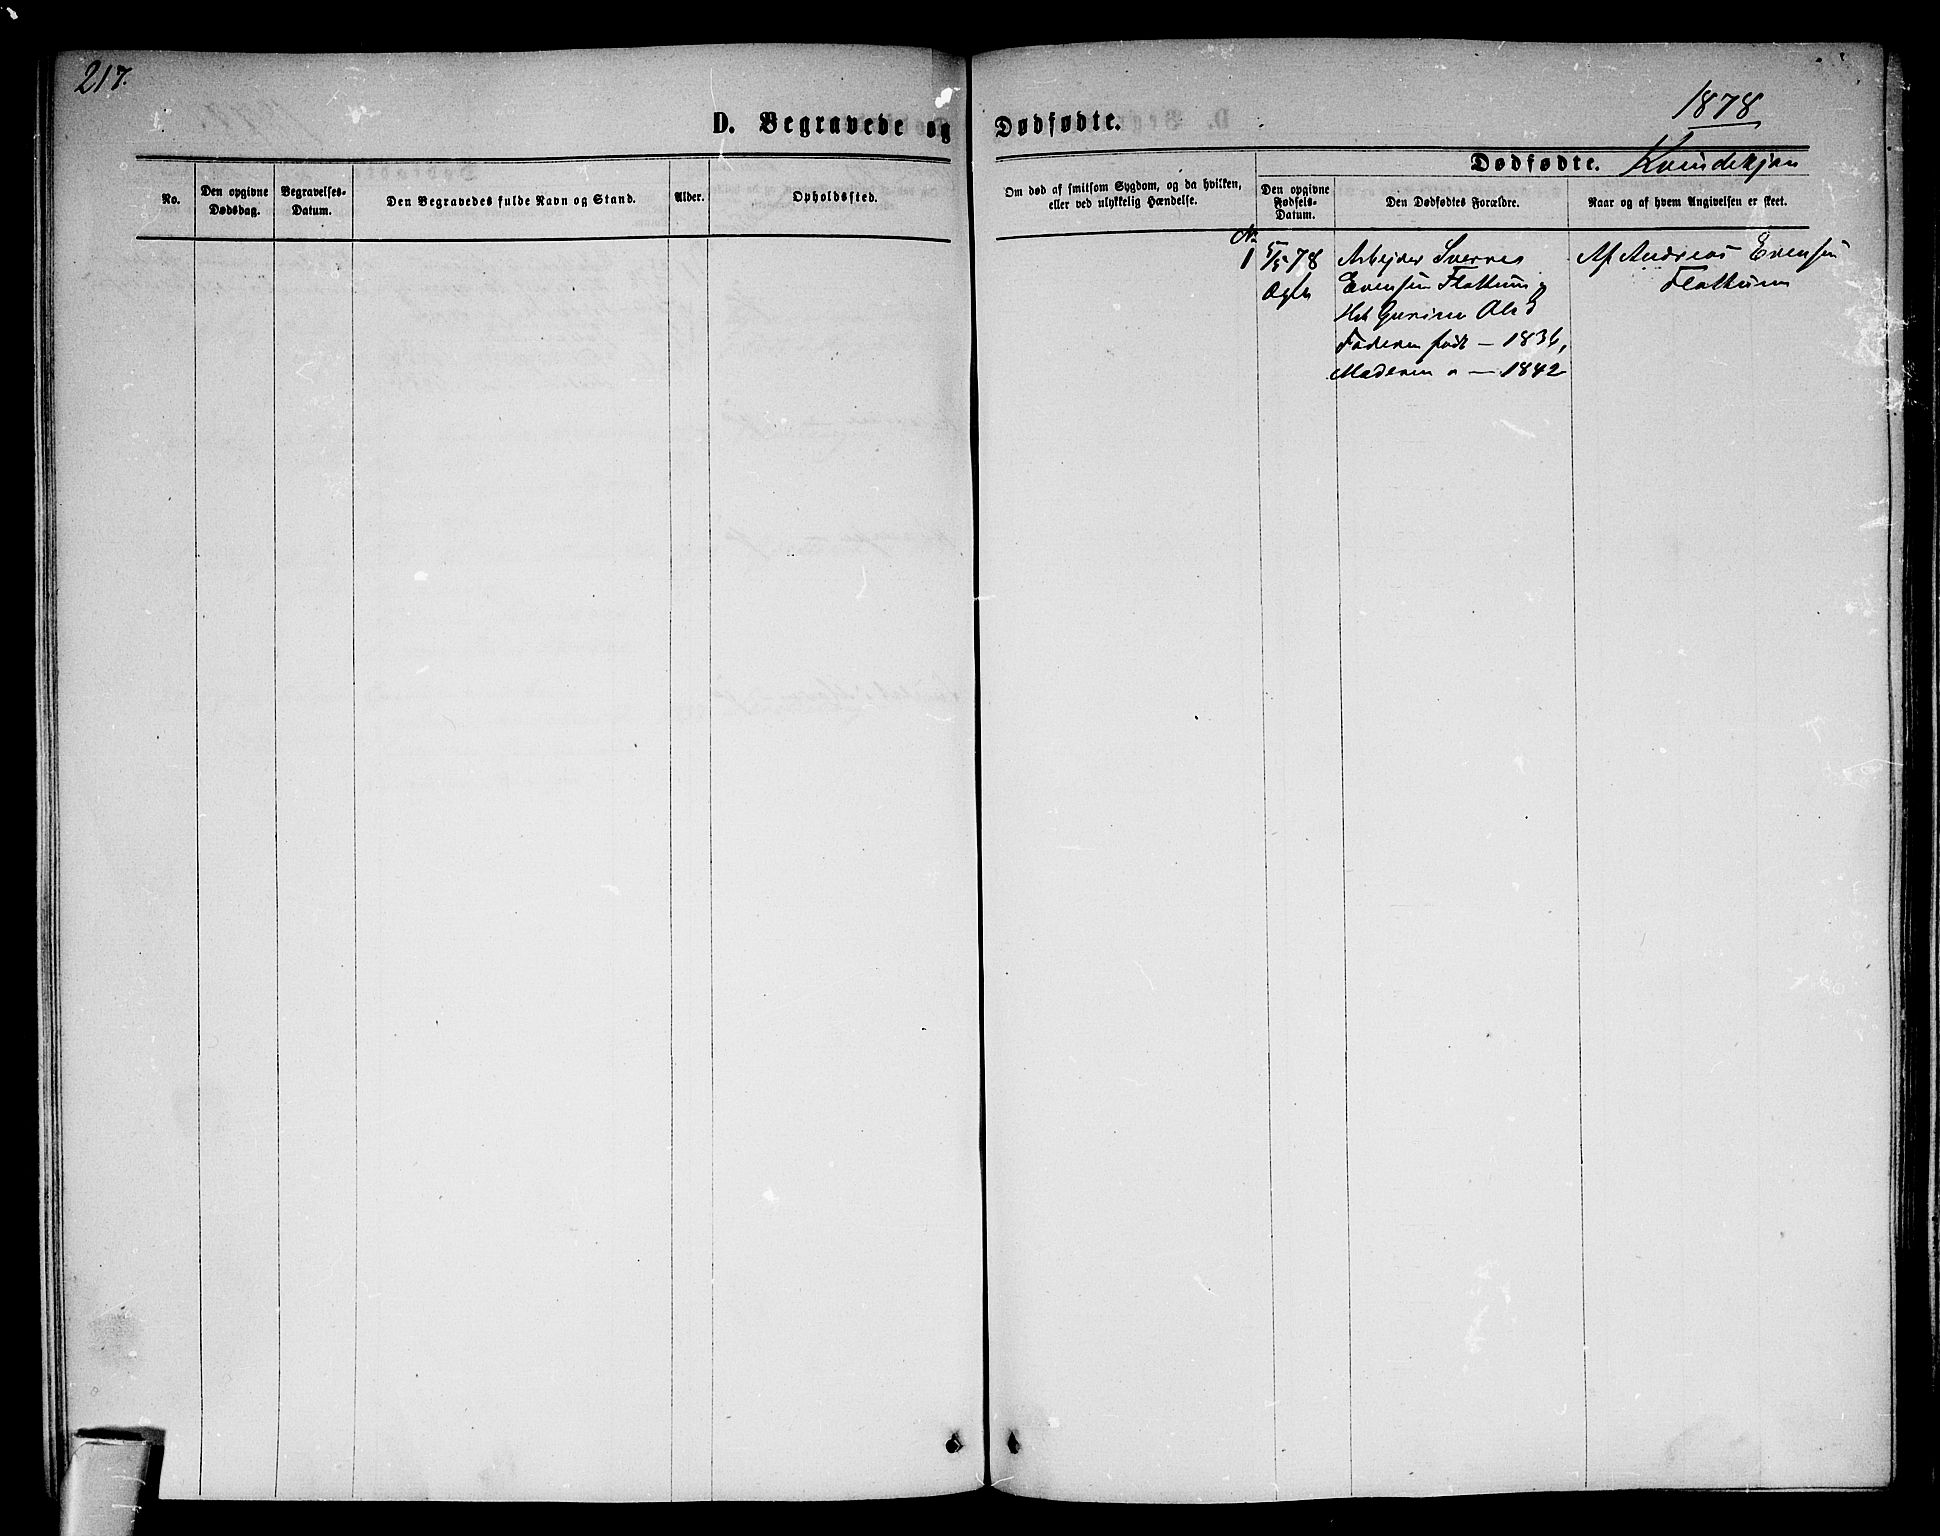 217.
1878
D. Begravede og Dødfødte.
Dødfødte. Kvindekjøn
No.
Den opgivne Dødsdag.
Begravelses-Datum.
Den Begravedes fulde Navn og Stand.
Alder.
Opholdssted.
Om død af smitsom Sygdom, og da hvilken,
eller ved ulykkelig Hændelse.
Den opgivne Fødsels-Datum.
Den Dødfødtes Forældre.
Naar og af hvem Angivelsen er skeet.
No
1 5/5 78 Arbejder Evensen Flattum og
Gurine Olsd
Faderen født – 1836,
Moderen " – 1842
Af Andreas Evensen
Flattum